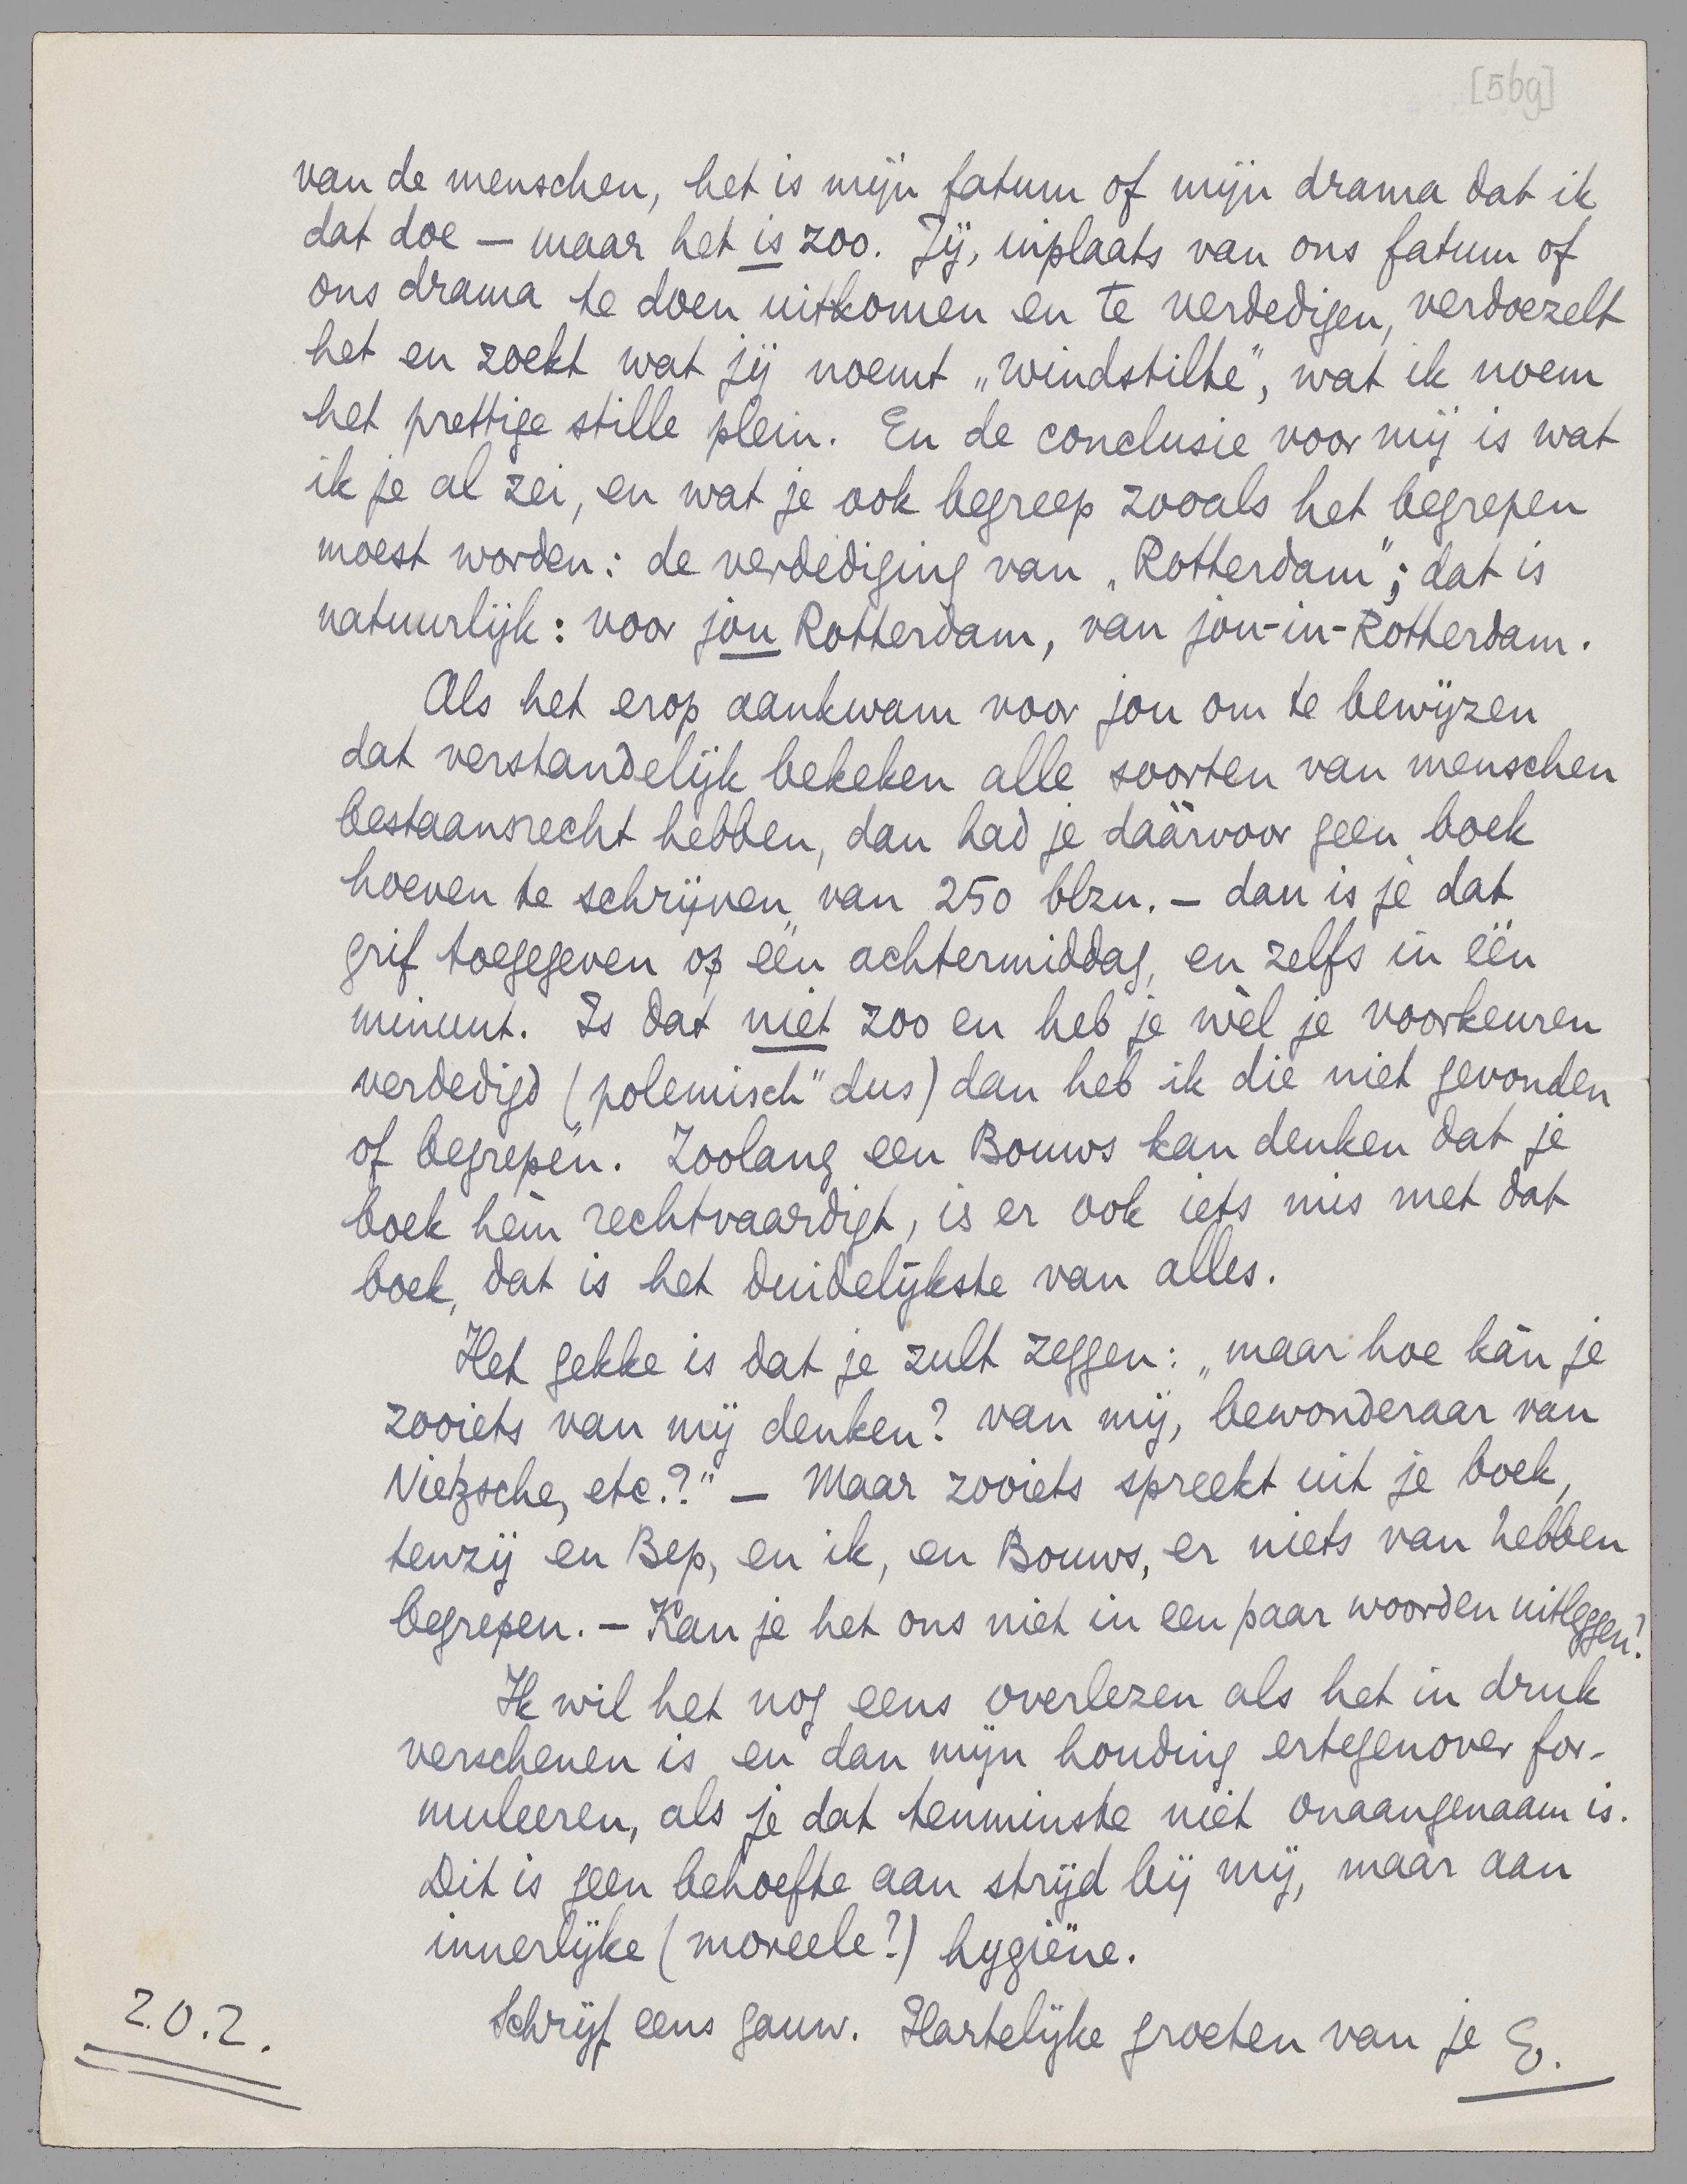 [5bg]
van de menschen, het is mijn fatum of mijn drama dat ik
dat doe — maar het is zoo. Jij, inplaats van ons fatum of
ons drama te doen uitkomen en te verdedigen, verdoezelt
het en zoekt wat jij noemt „windstilte”, wat ik noem
het prettige stille plein. En de conclusie voor mij is wat
ik je al zei, en wat je ook begreep zooals het begrepen
moest worden: de verdediging van „Rotterdam”; dat is
natuurlijk: voor jou Rotterdam, van jou-in-Rotterdam.
Als het erop aankwam voor jou om te bewijzen
dat verstandelijk bekeken alle soorten van menschen
bestaansrecht hebben, dan had je dáárvoor geen boek
hoeven te schrijven van 250 blzn. — dan is je dat
grif toegegeven op één achtermiddag, en zelfs in één
minuut. Is dat niet zoo en heb je wèl je voorkeuren
verdedigd (polemisch” dus) dan heb ik die niet gevonden
of begrepen. Zoolang een Bouws kan denken dat je
boek hèm rechtvaardigt, is er ook iets mis met dat
boek, dat is het duidelijkste van alles.
Het gekke is dat je zult zeggen: „maar hoe kàn je
zooiets van mij denken? van mij, bewonderaar van
Nietzsche, etc.?” — Maar zooiets spreekt uit je boek,
tenzij en Bep, en ik, en Bouws, er niets van hebben
begrepen. — Kan je het ons niet in een paar woorden uitleggen?
Ik wil het nog eens overlezen als het in druk
verschenen is en dan mijn houding ertegenover for-
muleeren, als je dat tenminste niet onaangenaam is.
Dit is geen behoefte aan strijd bij mij, maar aan
innerlijke (moreele?) hygiëne.
Schrijf eens gauw. Hartelijke groeten van je E.
Z.O.Z.